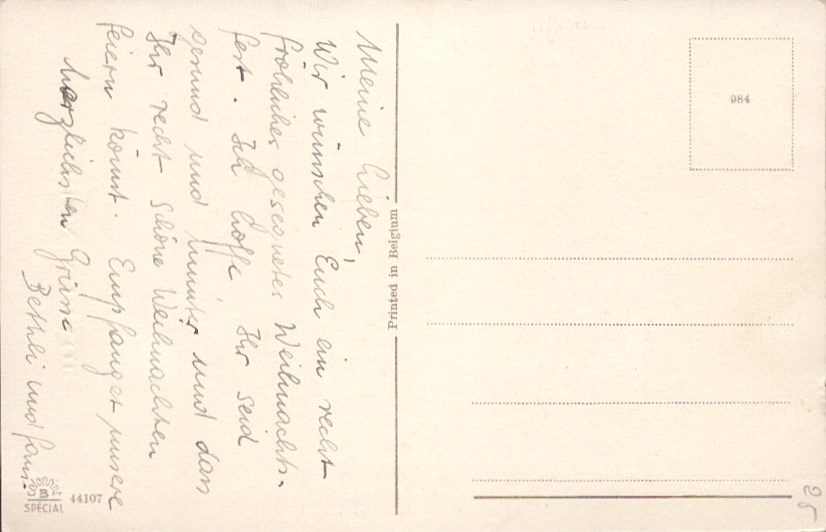 Meine Lieben!
Wir wünschen Euch ein recht
fröhliches gesegnetes Weihnachts-
fest. Ich hoffe Ihr seid
gesund und munter und dass
Ihr recht schöne Weihnachten
feiern könnt. Empfanget unsere
herzlichsten Grüsse
Bethli und Fam.
Printed in Belgium
984
B
SPÉCIAL
44107
25